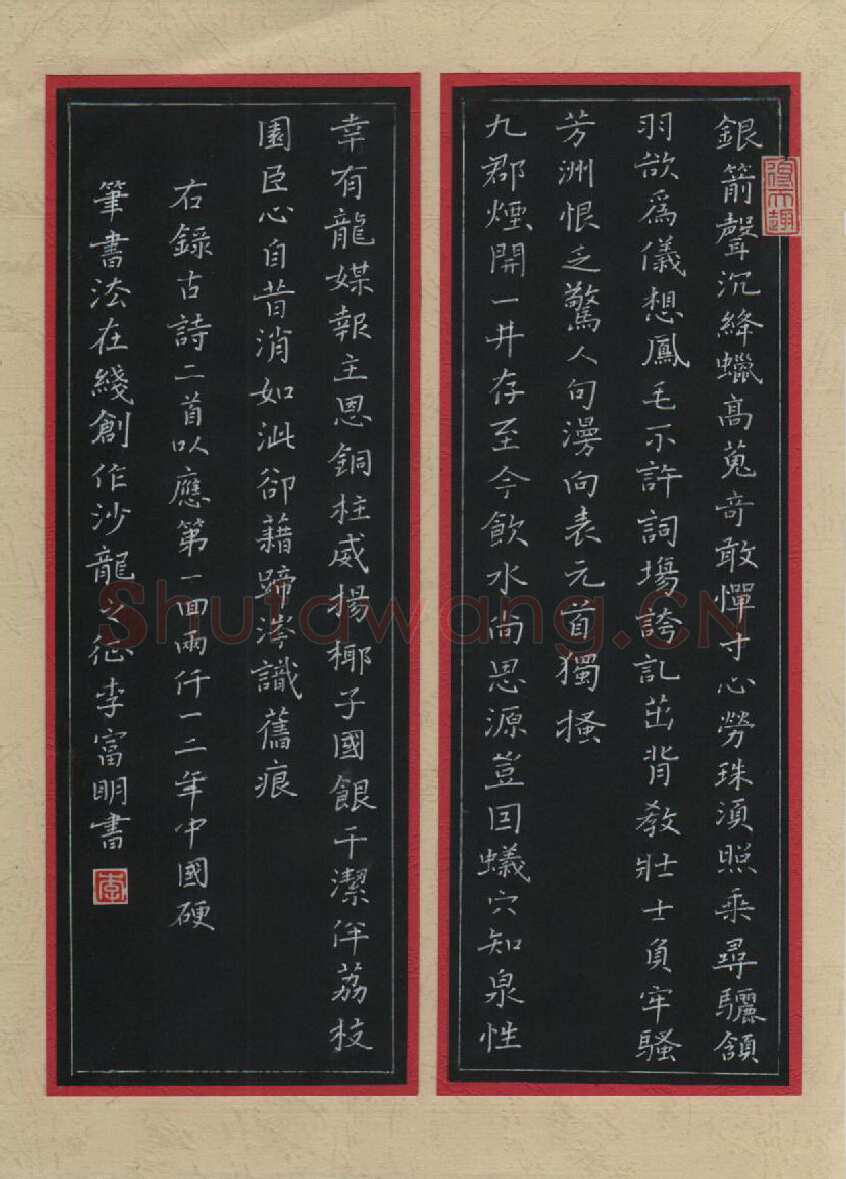 銀箭聲沉絳蠟高蒐奇敢憚寸心勞珠湏照乘尋驪頷
羽欲為儀想鳳毛不許詞場誇訌茁背教壯士負牢騷
芳洲恨乏驚人句漫向表元首獨搔
九郡煙開一井存至今飲水尚思源豈因蟻穴知泉性
幸有龍媒報主恩銅柱威揚椰子國銀干潔伴荔枝
園臣心自昔消如泚卻藉蹄涔識舊痕
右錄古詩二首以應第一回兩仟一二年中國硬
筆書法在綫創作沙龍之征李富明書
李
得天趣
Shufawang.CN